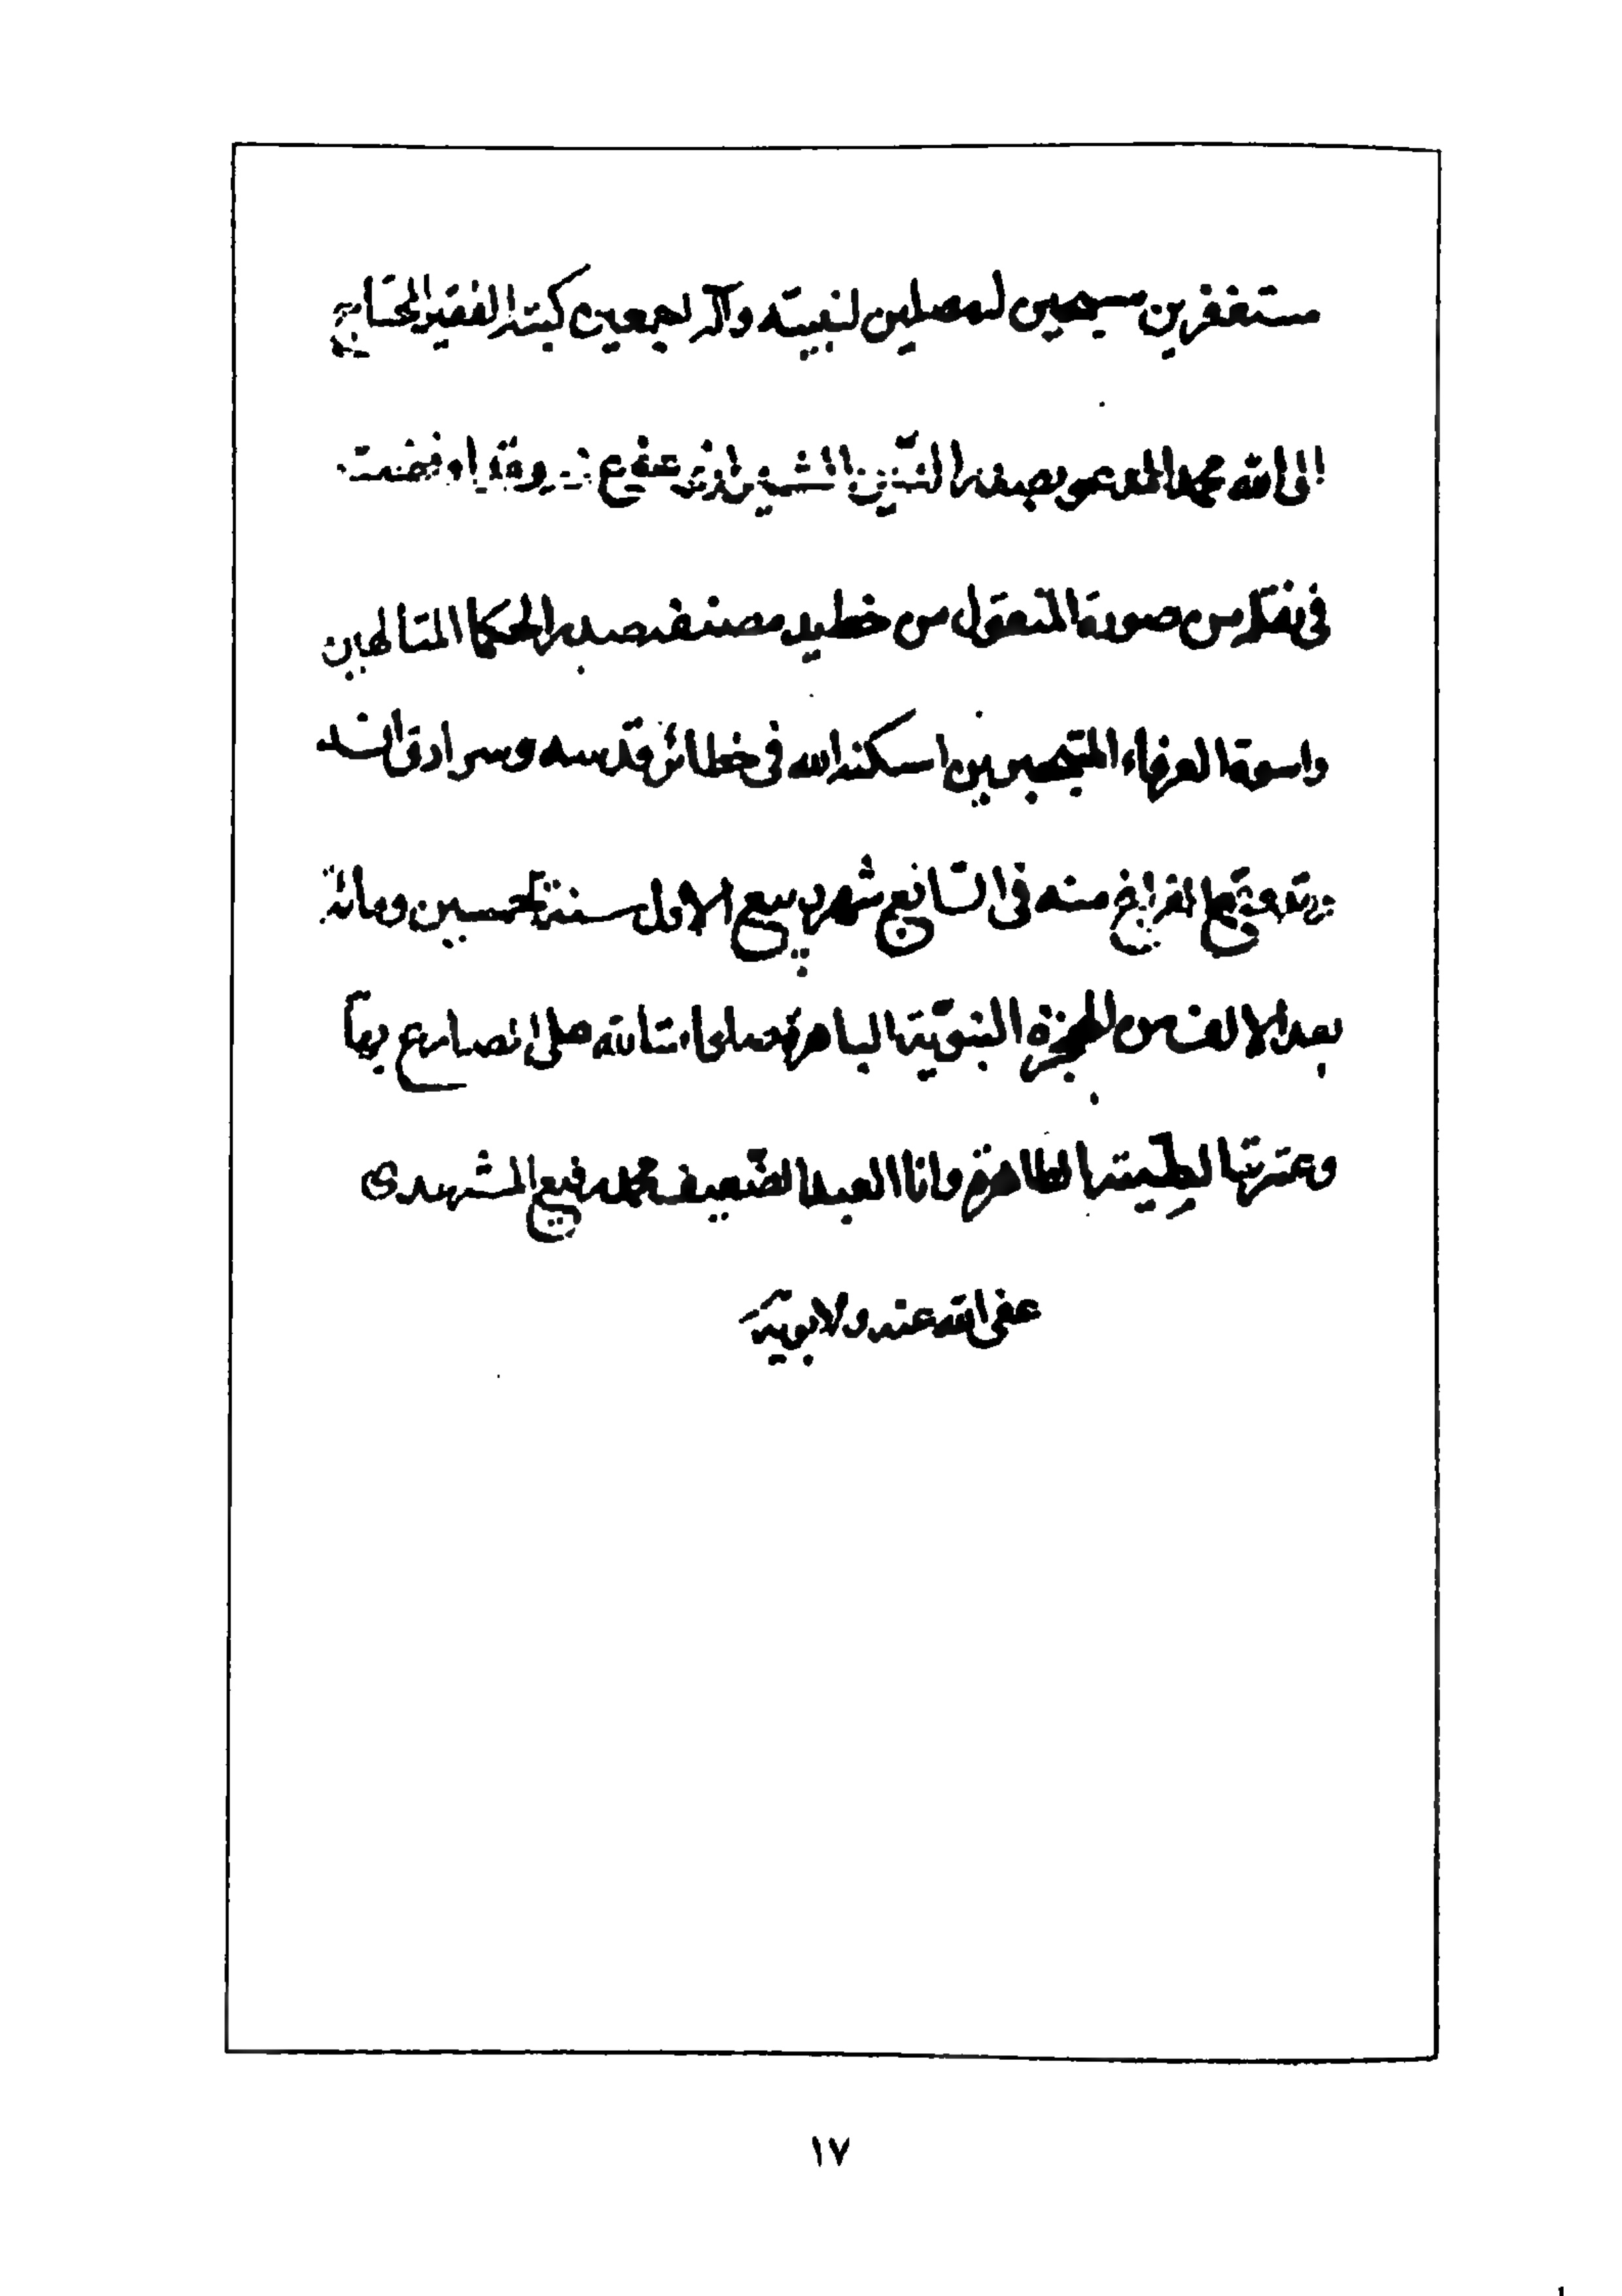 مستغفرين مسبحين له مصلين لنبيه وآله اجمعين كتبه الفقير المحتاج
الى الله محمد المدعو بصدر الدين الشيرازى عفى عنه وقد
فى نقله من صورة المنقول من خط يد مصنفه صدر الحكما المتالهين
واسوة العرفاء المتبحرين اسكنه الله فى خطائر قدسه وسرادق انسه
الفراغ منه فى التاسع شهر ربيع الاول سنة خمسين ومائة
بعد الالف من الهجرة النبوية الباهرة صلوات الله على
وعترتها الطيبة الطاهرة وانا العبد الضعيف محمد رفيع المشهدى
عفى الله عنه ولابويه
١٧